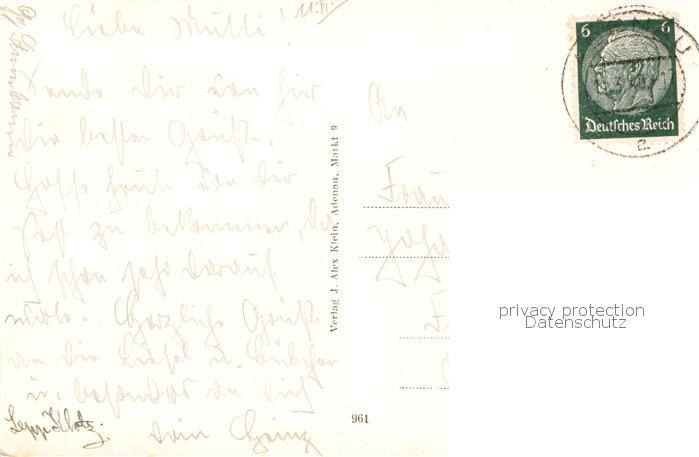 11.III.
Liebe Mutti!
Sende Dir von hier
die besten Grüße.
Hoffe heute von Dir
Post zu bekommen, da
ich schon sehr darauf
warte. Herzliche Grüße
an die Liesel u. Bübchen
u. besonders an Dich
dein Heinz
Sepp Klotz.
Verlag J. Alex Klein, Adenau, Markt 9
961
An
Frau
6 6
Deutsches Reich
a
privacy protection
Datenschutz